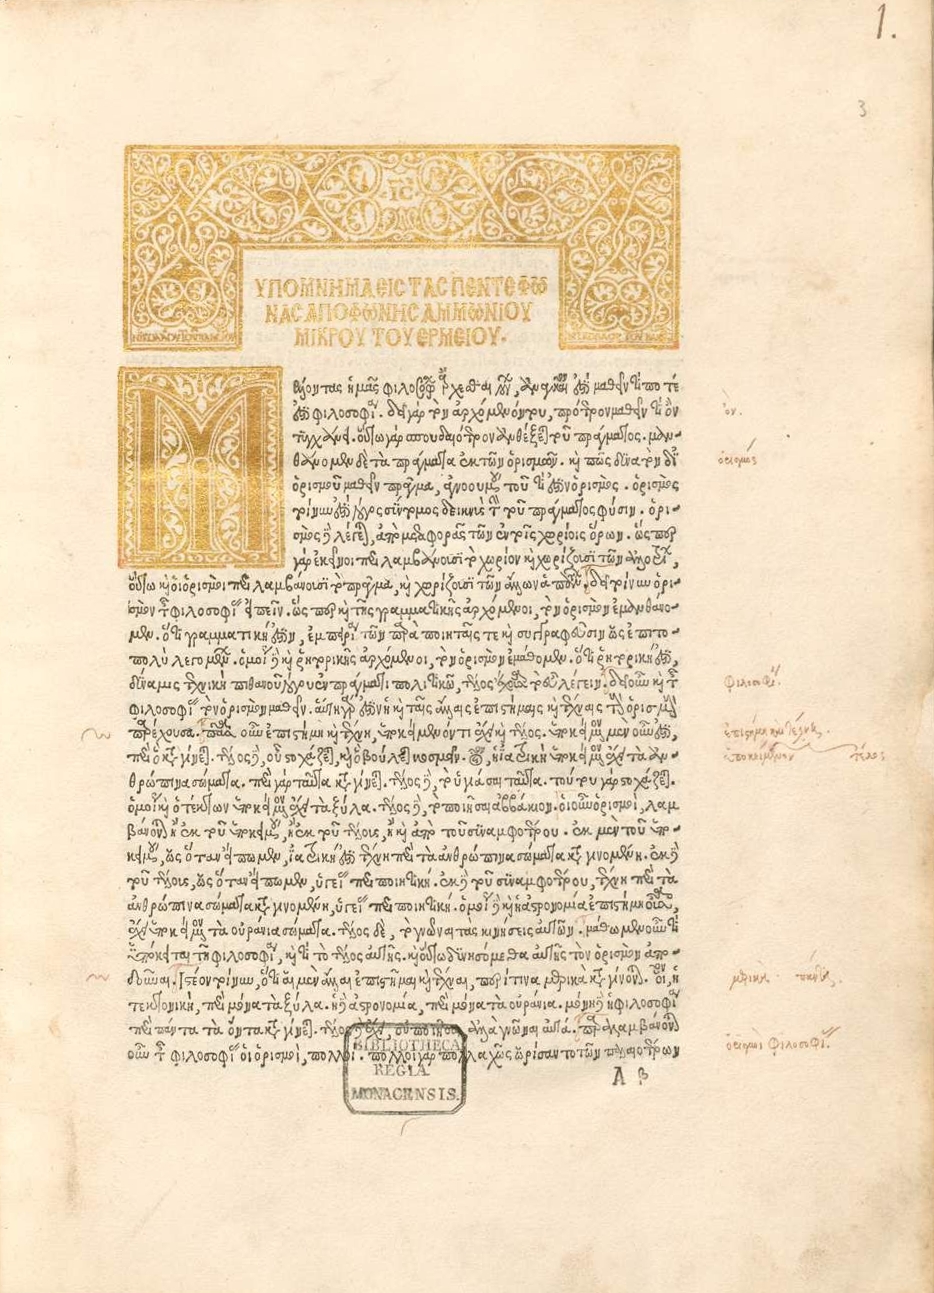 1.
3
IC
ΥΠΟΜΝΗΜΑ ΕΙΣ ΤΑΣ ΠΕΝΤΕ ΦΩ
ΝΑΣ ΑΠΟ ΦΩΝΗΣ ΑΜΜΩΝΙΟΥ
ΜΙΚΡΟΥ ΤΟΥ ΕΡΜΕΙΟΥ.
Μ
έλλοντας ἡμᾶς φιλοσοφίας ἄρχεσθαι λόγου, ἀναγκαῖόν ἐστι μαθεῖν τί ποτέ
ἐστι φιλοσοφία. δεῖ γὰρ τὸν ἀρχόμενόν του, πρότερον μαθεῖν τί ὂν
τυγχάνει. οὕτω γὰρ σπουδαιότερον ἀνθέξεται τοῦ πράγματος. μαν-
θάνομεν δὲ τὰ πράγματα ἐκ τῶν ὁρισμῶν. καὶ πῶς δυνατὸν δι'
ὁρισμοῦ μαθεῖν πρᾶγμα, ἀγνοοῦμεν τοῦ τί ἐστιν ὁρισμός. ὁρισμὸς
τοίνυν ἐστὶ λόγος σύντομος δεικνὺς τὴν τοῦ πράγματος φύσιν. ὁρι-
σμὸς δὲ λέγεται, ἀπὸ μεταφορᾶς τῶν ἐν τοῖς χωρίοις ὅρων. ὥσπερ
γὰρ ἐκεῖνοι περιλαμβάνουσι τὸ χωρίον καὶ χωρίζουσι τῶν ἀλλοτρίων,
οὕτω καὶ οἱ ὁρισμοὶ περιλαμβάνουσι τὸ πρᾶγμα, καὶ χωρίζουσι τῶν ἄλλων ἁπάντων. δεῖ τοίνυν ὁρι-
σμὸν τῆς φιλοσοφίας εἰπεῖν. ὥσπερ καὶ τῆς γραμματικῆς ἀρχόμενοι, τὸν ὁρισμὸν ἐμανθάνο-
μεν. ὅτι γραμματική ἐστιν, ἐμπειρία τῶν παρὰ ποιηταῖς τε καὶ συγγραφεῦσιν ὡς ἐπιτο-
πολὺ λεγομένων. ὁμοίως δὲ καὶ ῥητορικῆς ἀρχόμενοι, τὸν ὁρισμὸν ἐμάθομεν. ὅτι ῥητορική ἐστι,
δύναμις τεχνικὴ πιθανοῦ λόγου ἐν πράγματι πολιτικῷ, τέλος ἔχουσα τὸ εὖ λέγειν. δεῖ οὖν καὶ τῆς
φιλοσοφίας τὸν ὁρισμὸν μαθεῖν. αὕτη γάρ ἐστιν ἡ καὶ ταῖς ἄλλαις ἐπιστήμαις καὶ τέχναις τοὺς ὁρισμοὺς
παρέχουσα. πᾶσα οὖν ἐπιστήμη καὶ τέχνη, ὑποκείμενόν τι ἔχει καὶ τέλος. ὑποκείμενον μὲν οὖν ἐστι,
περὶ ὃ καταγίνεται. τέλος δὲ, οὗ στοχάζεται, καὶ ὃ βούλεται ποιῆσαι. οἷον, ἡ ἰατρικὴ ὑποκείμενον ἔχει τὰ ἀν-
θρώπινα σώματα. περὶ γὰρ ταῦτα καταγίνεται. τέλος δὲ, τὸ ὑγιάσαι ταῦτα. τούτου γὰρ στοχάζεται.
ὁμοίως καὶ ὁ τέκτων ὑποκείμενον ἔχει τὰ ξύλα. τέλος δὲ, τὸ ποιῆσαι ἀβάκιον. οἱ οὖν ὁρισμοὶ, λαμ
βάνονται ἢ ἐκ τοῦ ὑποκειμένου, ἢ ἐκ τοῦ τέλους, ἢ καὶ ἀπὸ τοῦ συναμφοτέρου. ἐκ μὲν τοῦ ὑπο-
κειμένου, ὡς ὅταν εἴπωμεν, ἰατρική ἐστι τέχνη περὶ τὰ ἀνθρώπινα σώματα καταγινομένη. ἐκ δὲ
τοῦ τέλους, ὡς ὅταν εἴπωμεν, ὑγείας περιποιητική. ἐκ δὲ τοῦ συναμφοτέρου, τέχνη περὶ τὰ
ἀνθρώπινα σώματα καταγινομένη, ὑγείας περιποιητική. ὁμοίως δὲ καὶ ἡ ἀστρονομία ἐπιστήμη οὖσα,
ἔχει ὑποκείμενον τὰ οὐράνια σώματα. τέλος δὲ, τὸ γνῶναι τὰς κινήσεις αὐτῶν. μάθωμεν οὖν τί
ὑπόκειται τῇ φιλοσοφίᾳ, καὶ τί τὸ τέλος αὐτῆς. καὶ οὕτω δυνησόμεθα αὐτῆς τὸν ὁρισμὸν ἀπο-
δοῦναι. Ἰστέον τοίνυν, ὅτι αἱ μὲν ἄλλαι ἐπιστῆμαι καὶ τέχναι, περί τινα μερικὰ καταγίνονται. οἷον, ἡ
τεκτονικὴ, περὶ μόνα τὰ ξύλα. ἡ δὲ ἀστρονομία, περὶ μόνα τὰ οὐράνια. μόνη δὲ ἡ φιλοσοφία
περὶ πάντα τὰ ὄντα καταγίνεται. τέλος δὲ ἔχει, οὐ ποιῆσαι ἀλλὰ γνῶναι αὐτά. παραλαμβάνονται
οὖν τῆς φιλοσοφίας οἱ ὁρισμοὶ, πολλοί. πολλοὶ γὰρ πολλαχῶς ὡρίσαντο τῶν παλαιοτέρων
Α β
ὄν.
ὁρισμός
φιλοσοφία.
ἐπιστήμη καὶ τέχνη.
ὑποκείμενον τέλος
μερικὰ πάντα.
ὁρισμοὶ φιλοσοφίας.
BIBLIOTHECA
REGIA
MONACENSIS.